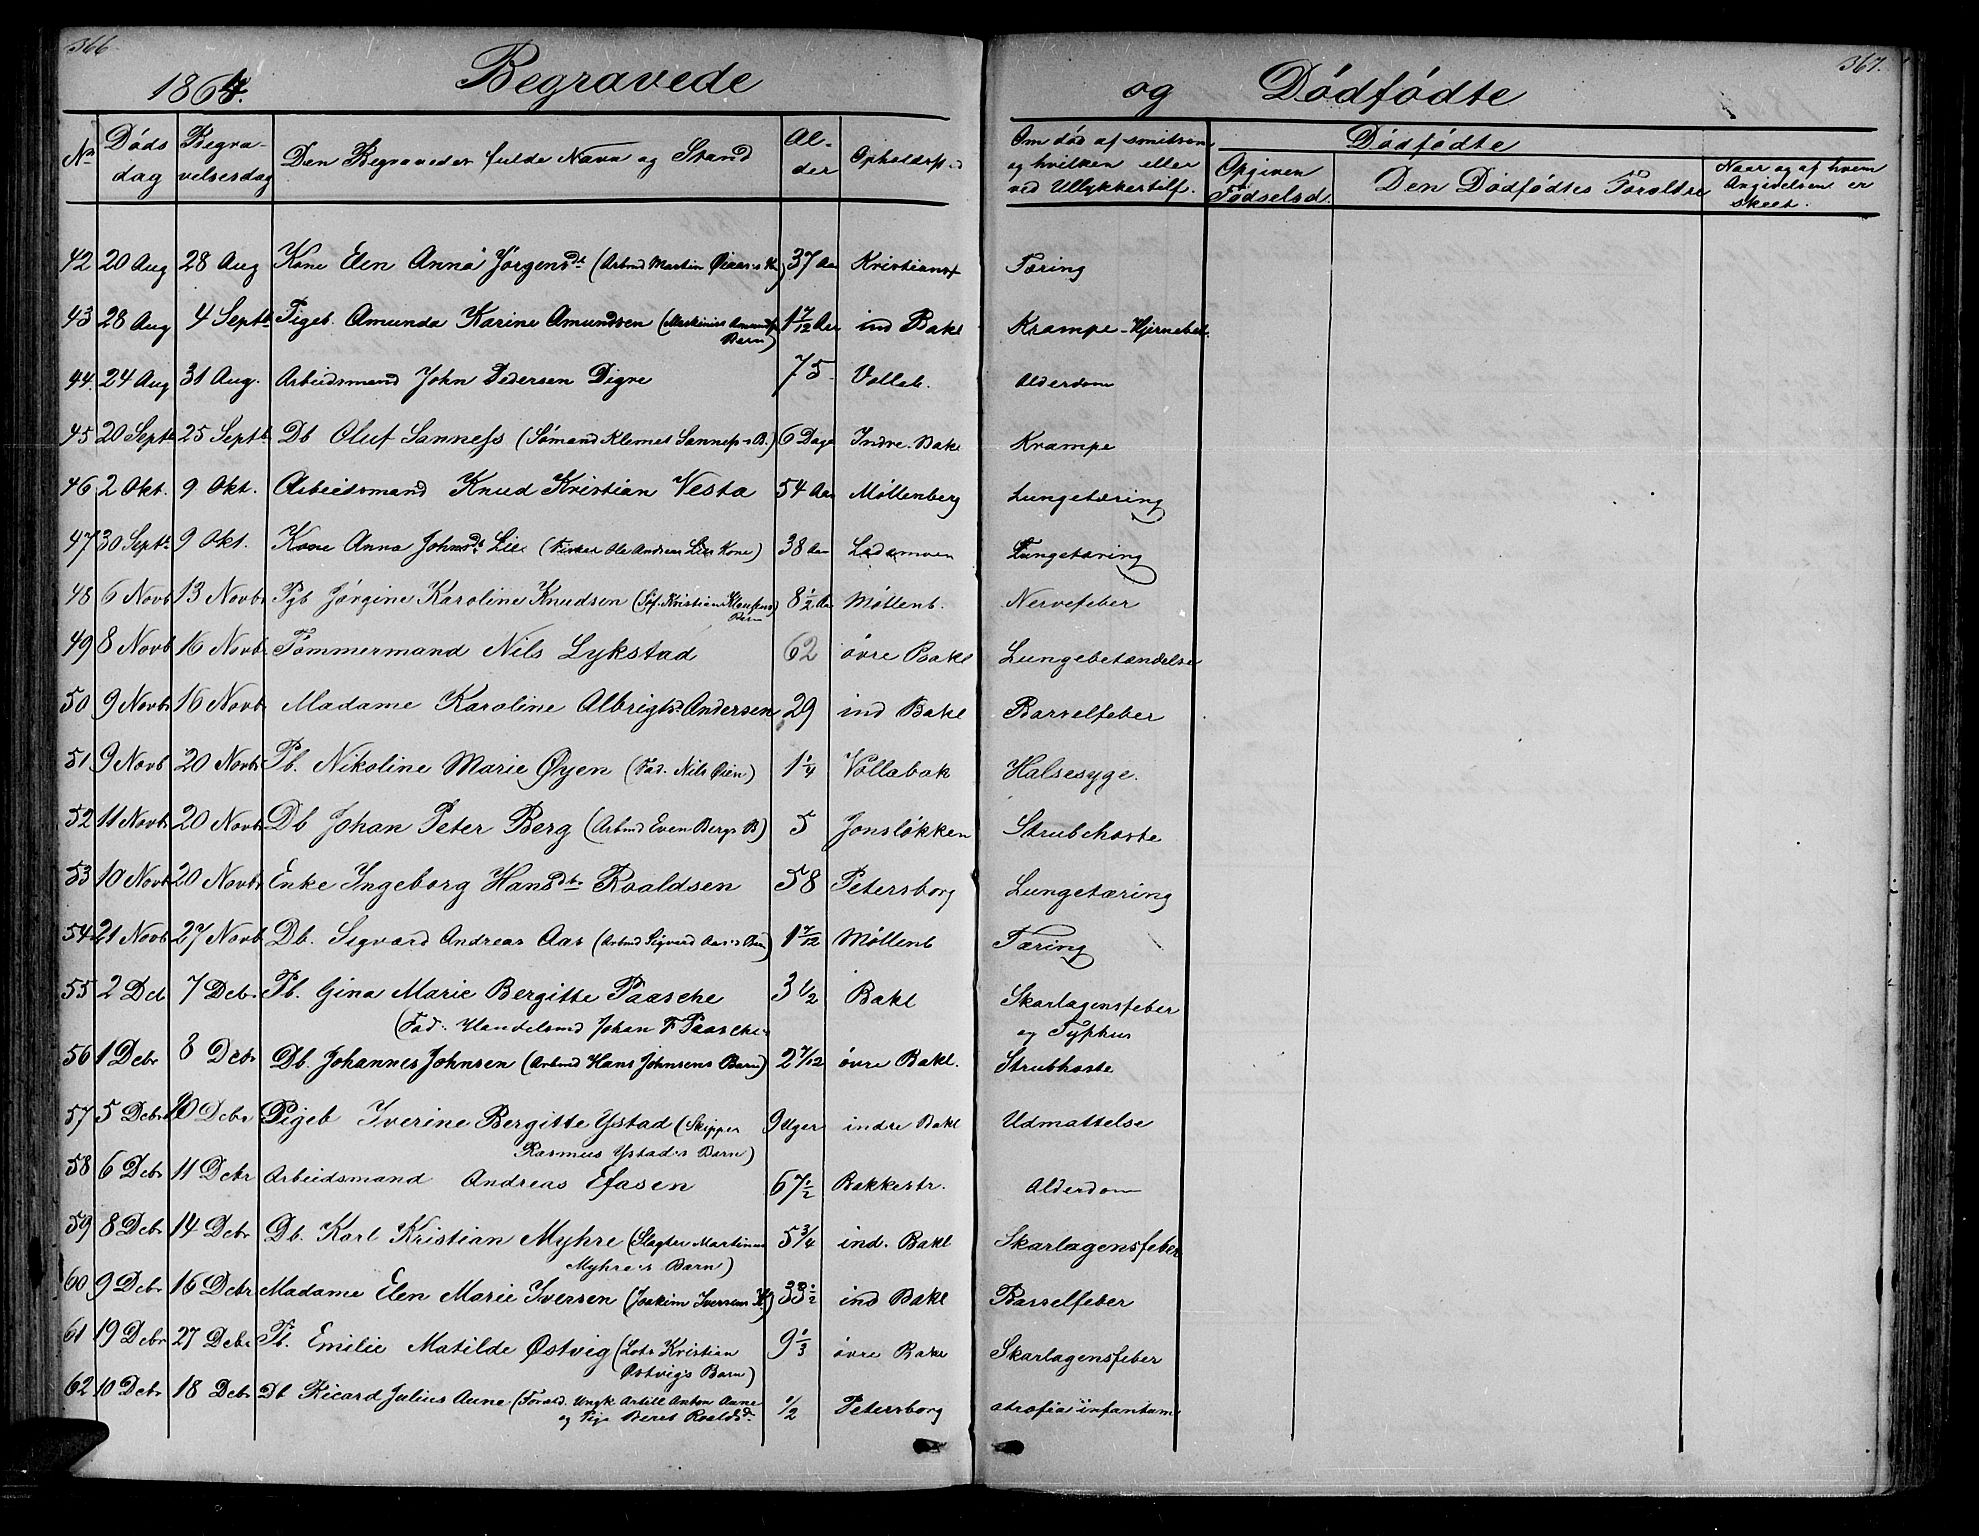 366
367.
1864.
Begravede
og Dødfødte
No
Døds
dag
Begra-
velsesdag
Den Begravedes fulde Navn og Stand
Al-
der
Opholdsst.
Om død af smitsom
og hvilken eller
ved Ullykkestilf.
Dødfødte
Opgiven
Fødselsd.
Den Dødfødtes Forældre
Naar og af hvem
Angivelsen er
skeet.
42 20 Aug 28 Aug Kone Elen Anna Jørgensdt (Arbmd Martin 37 Aar Kristianst Tæring
43 28 Aug 4 Septb. Pigeb. Amunda Karine Amundsen (Maskinist 1 7/12 Aar ind Bakl Krampe-Hjernebet.
Barn)
44. 24 Aug 31 Aug. Arbeidsmand John Pedersen Digre 75 Vollab. Alderdom
45 20 Septb 25 Septb Db Oluf Sanness (Sømand Klemet Sanness's B.) 6 Dage Indre. Bakl Krampe
46 2 Okt. 9 Okt. Arbeidsmand Knud Kristian Vesta 54 Aar Møllenberg Lungetæring
47 30 Septb 9 Okt. Kone Anna Johnsdt Lie (Fisker Ole Andreas Lies Kone) 38 Aar Lademoen Lungetæring
48 6 Novb 13 Novbr Pgb Jørgine Karoline Knudsen (Søf. Kristian 8 1/2 Aar Møllenb. Nervefeber
Barn
49 8 Novb 16 Novb. Tømmermand Nils Lykstad 62 øvre Bakl Lungebetændelse
50 9 Novbr 16 Novb Madame Karoline Albrigtsd. Andersen 29 ind Bakl Barselfeber
51 9 Novb 20 Novbr Pb. Nikoline Marie Øyen (Fad. Nils Øien) 1 1/4 Vollabak Halsesyge.
52 11 Novbr 20 Novbr Db Johan Peter Berg (Arbmd Even Bergs B) 5 Jonsløkken Strubehoste
53 10 Novb 20 Novbr Enke Ingeborg Hansdtr Roaldsen 58 Petersborg Lungetæring
54 21 Novb 27 Novb Db. Sigvard Andreas Aas (Arbmd Sigvard Aas's Barn) 1 7/12 Møllenb Tæring
55 2 Deb 7 Debr Pb. Gina Marie Bergitte Paasche 3 1/2 Bakl Skarlagensfeber
(Fad. Handelsmd Johan F Paasche) og Typhus
56 1 Debr 8 Debr Db. Johannes Johnsen (Arbmd Hans Johnsens Barn) 2 7/12 øvre Bakl. Strubhoste
57 5 Debr 10 Debr Pigeb Iverine Bergitte Ystad (Skipper 9 Uger indre Bakl Udmattelse
Rasmus Ystad's Barn)
58 6 Debr 11 Debr Arbeidsmand Andreas Efasen 67 1/2 Bakkestr. Alderdom
59 8 Debr 14 Debr Db. Karl Kristian Myhre (Slagter Martinus 5 3/4 ind. Bakl Skarlagensfeber
Myhre's Barn)
60 9 Debr 16 Debr Madame Elen Marie Iversen (Joakim Iversens K) 33 1/2 ind Bakl Barselfeber
61 19 Debr 27 Debr Pb. Emilie Matilde Østvig (Lods Kristian 9 1/3 øvre Bakl Skarlagensfeber
Østvigs Barn)
62 10 Debr 18 Debr Db Ricard Julius Aune (Foræld. Ungk Artill Anton Aune 1/2 Petersborg atrofia infantum
og Pige Beret Roaldsdr